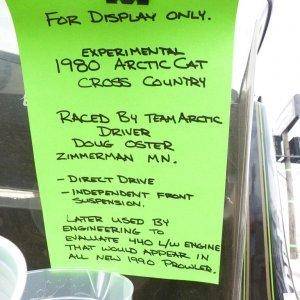 FOR DISPLAY ONLY.
EXPERIMENTAL
1980 ARCTIC CAT
CROSS COUNTRY
RACED BY TEAM ARCTIC
DRIVER
DOUG OSTER
ZIMMERMAN MN.
- DIRECT DRIVE
- INDEPENDENT FRONT
SUSPENSION.
LATER USED BY
ENGINEERING TO
EVALUATE 440 L/W ENGINE
THAT WOULD APPEAR IN
ALL NEW 1990 PROWLER.